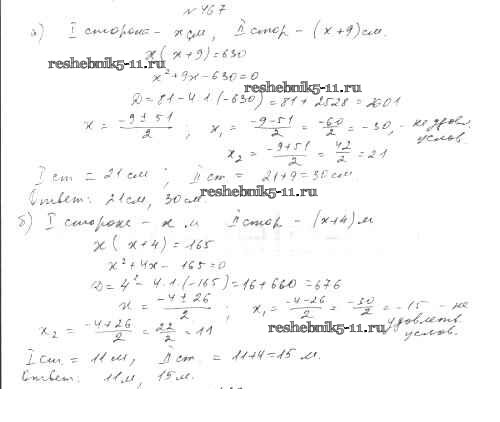 №467
а) I сторона - x см, II стор - (x+9) см.
x(x+9)=630
reshebnik5-11.ru
x²+9x-630=0
reshebnik5-11.ru
D=81-4·1·(-630)=81+2528=2601
x = (-9±51)/2 ; x₁ = (-9-51)/2 = -60/2 = -30, - не удовл. услов.
x₂ = (-9+51)/2 = 42/2 = 21
I ст = 21 см ; II ст = 21+9=30 см.
Ответ: 21 см, 30 см.
reshebnik5-11.ru
б) I сторона - x м II стор - (x+4) м
x(x+4)=165
x²+4x-165=0
D=4²-4·1·(-165)=16+660=676
x = (-4±26)/2 ; x₁ = (-4-26)/2 = -30/2 = -15 - не удовлетв. услов.
x₂ = (-4+26)/2 = 22/2 = 11
reshebnik5-11.ru
I ст = 11 м, II ст. = 11+4=15 м.
Ответ: 11 м, 15 м.